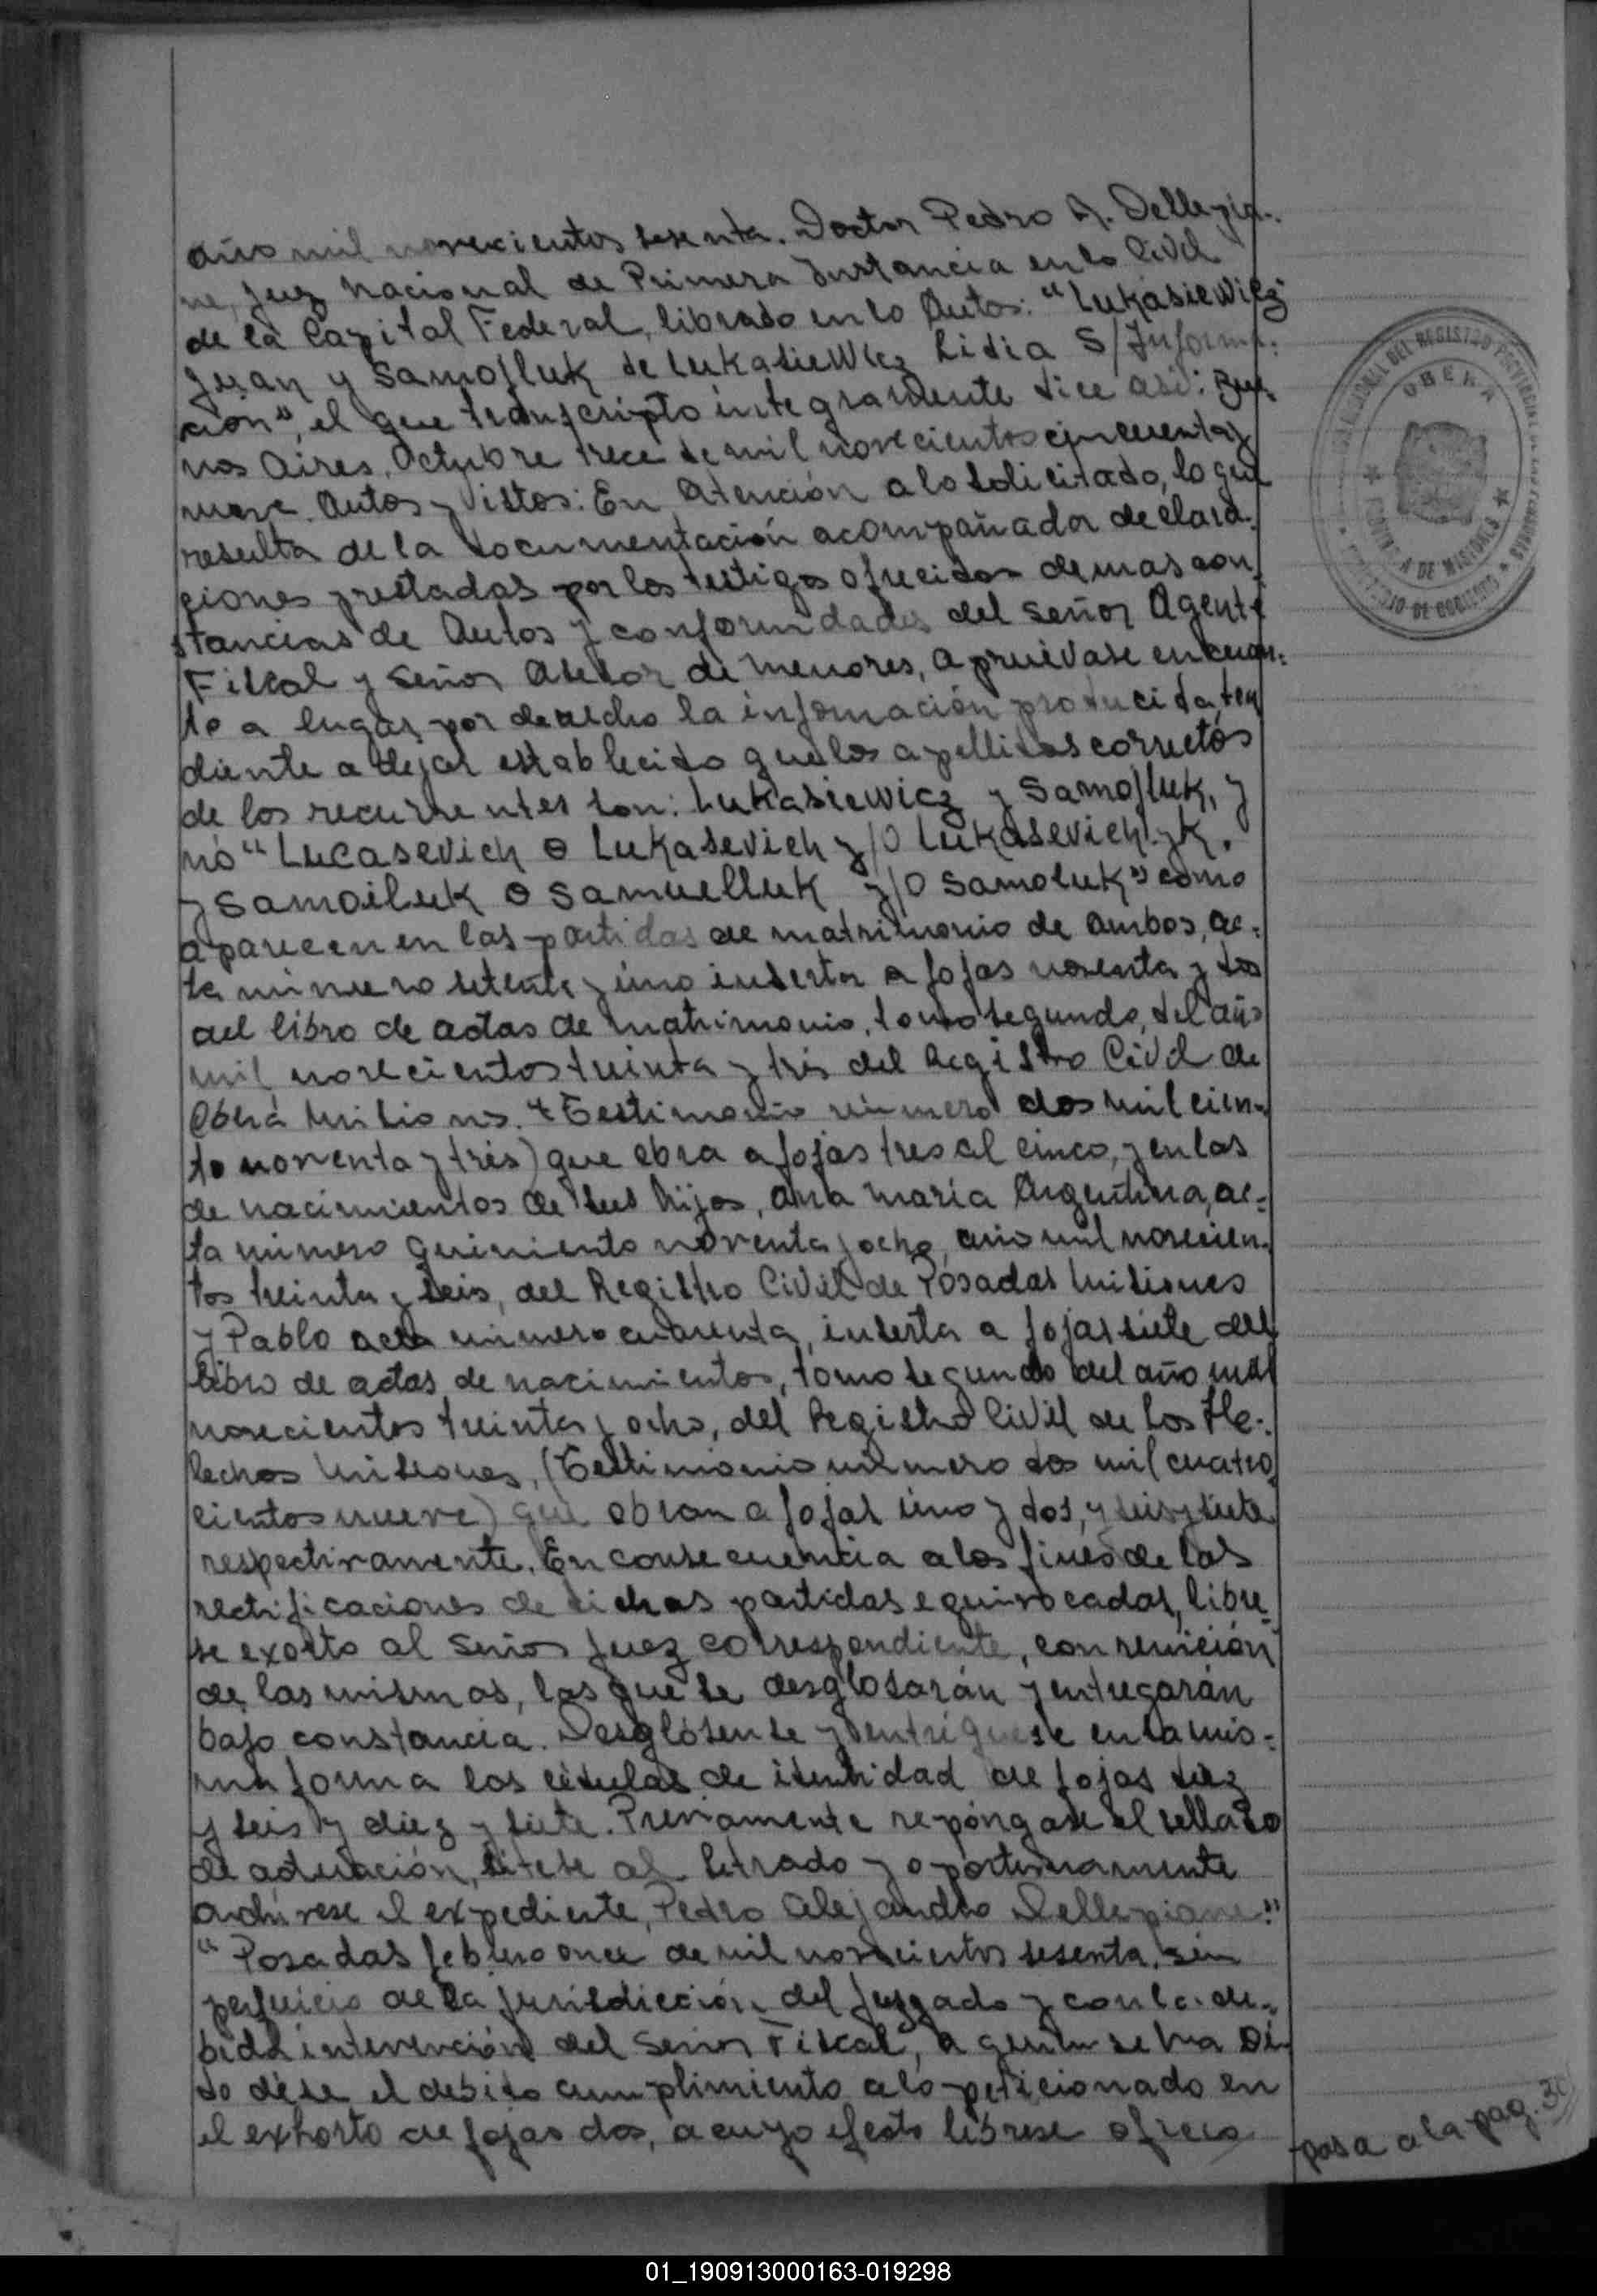 año mil novecientos sesenta. Doctor Pedro A. Dellepia-
ne, Juez Nacional de Primera Instancia en lo Civil
de la Capital Federal, librado en lo Autos: "Lukasiewicz
Juan y Samojluk de Lukasiewicz Lidia S/Informa-
ción", el que transcripto integramente dice así: Bue-
nos Aires, Octubre trece de mil novecientos cincuenta y
nueve. Autos y Vistos: En atención a lo solicitado, lo que
resulta de la documentación acompañador declara-
ciones prestadas por los testigos ofrecidos demas con-
stancias de Autos y conformidades del señor Agente
Fiscal y Señor Asesor de menores, apruévase en cuan-
to a lugar por derecho la información producida, ten
diente a dejar establecido que los apellidos correctos
de los recurrentes son: Lukasiewicz y Samojluk, y
no "Lucasevich o Lukasevich y/o Lukasevichyk,
y Samoiluk o Samuelluk y/o Samoluk" como
aparecen en las partidas de matrimonio de ambos, ac-
ta número setenta y uno inserta a fojas noventa y dos
del libro de actas de matrimonio, tomo segundo, del año
mil novecientos treinta y tres del Registro Civil de
Oberá Misiones. Testimonio número dos mil cien-
to noventa y tres) que obra a fojas tres al cinco, y en las
de nacimientos de sus hijos, Ana María Argentina, ac-
ta número quiniento noventa y ocho, año mil novecien-
tos treinta y seis, del Registro Civil de Posadas Misiones
y Pablo acta número cuarenta, inserta a fojas siete del
libro de actas de nacimientos, tomo segundo del año mil
novecientos treinta y ocho, del Registro Civil de Los He-
lechos Misiones, (Testimonio número dos mil cuatro
cientos nueve) que obran a fojas uno y dos, y seis y siete
respectivamente. En consecuencia a los fines de las
rectificaciones de dichas partidas equivocadas, libre-
se exorto al Señor Juez correspondiente, con remición
de las mismas, las que se desglosarán y entregarán
bajo constancia. Desglósense y entréguese en la mis-
ma forma las cédulas de identidad de fojas diez
y seis y diez y siete. Previamente repóngase el sellado
de actuación, cítese al letrado y oportunamente
archívese el expediente, Pedro Alejandro Dellepiane."
"Posadas febrero once de mil novecientos sesenta, sin
perjuicio de la jurisdicción del Juzgado y con la de-
bida intervención del Señor Fiscal, a quien se ha oi-
do dése el debido cumplimiento a lo peticionado en
el exhorto de fojas dos, a cuyo efecto líbrese oficio
pasa a la pag.
OBERA
DEL REGISTRO PROVINCIAL DE LAS PERSONAS
DE MISIONES
DE GOBIERNO
01_190913000163-019298